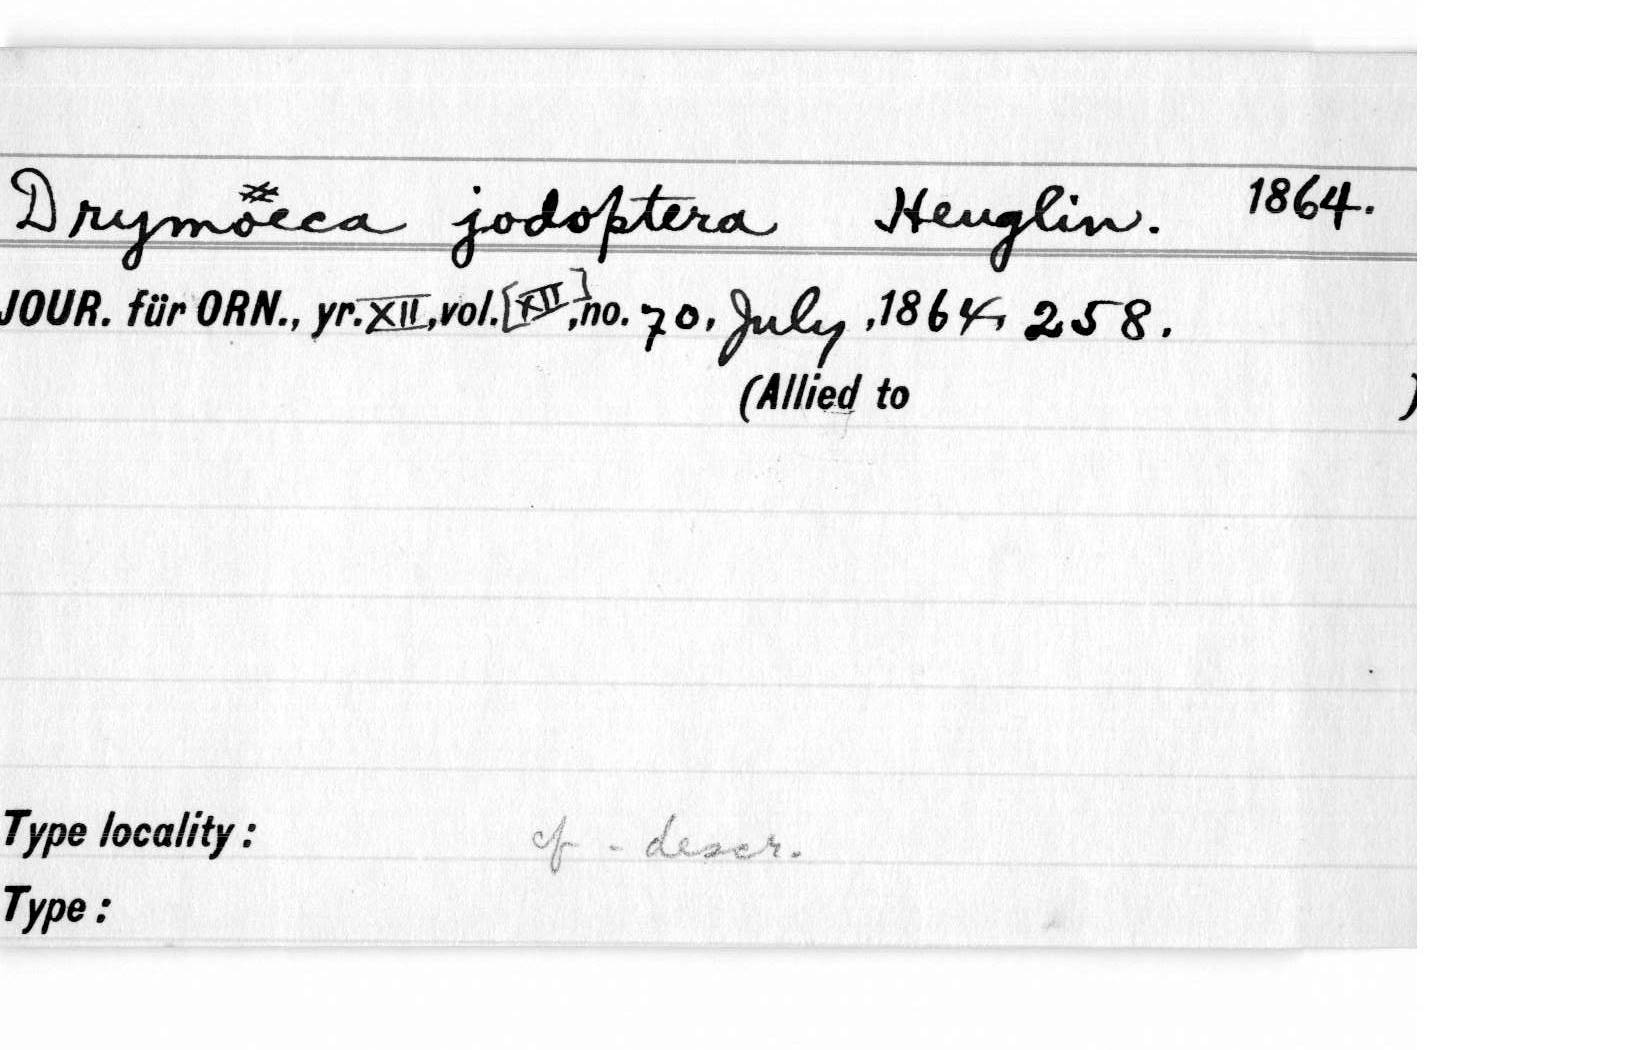 Drymoeca jodoptera Heuglin. 1864.
JOUR. für ORN., yr. XII, vol. [XII], no. 70, July, 1864, 258.
(Allied to )
Type locality: cf - descr.
Type: